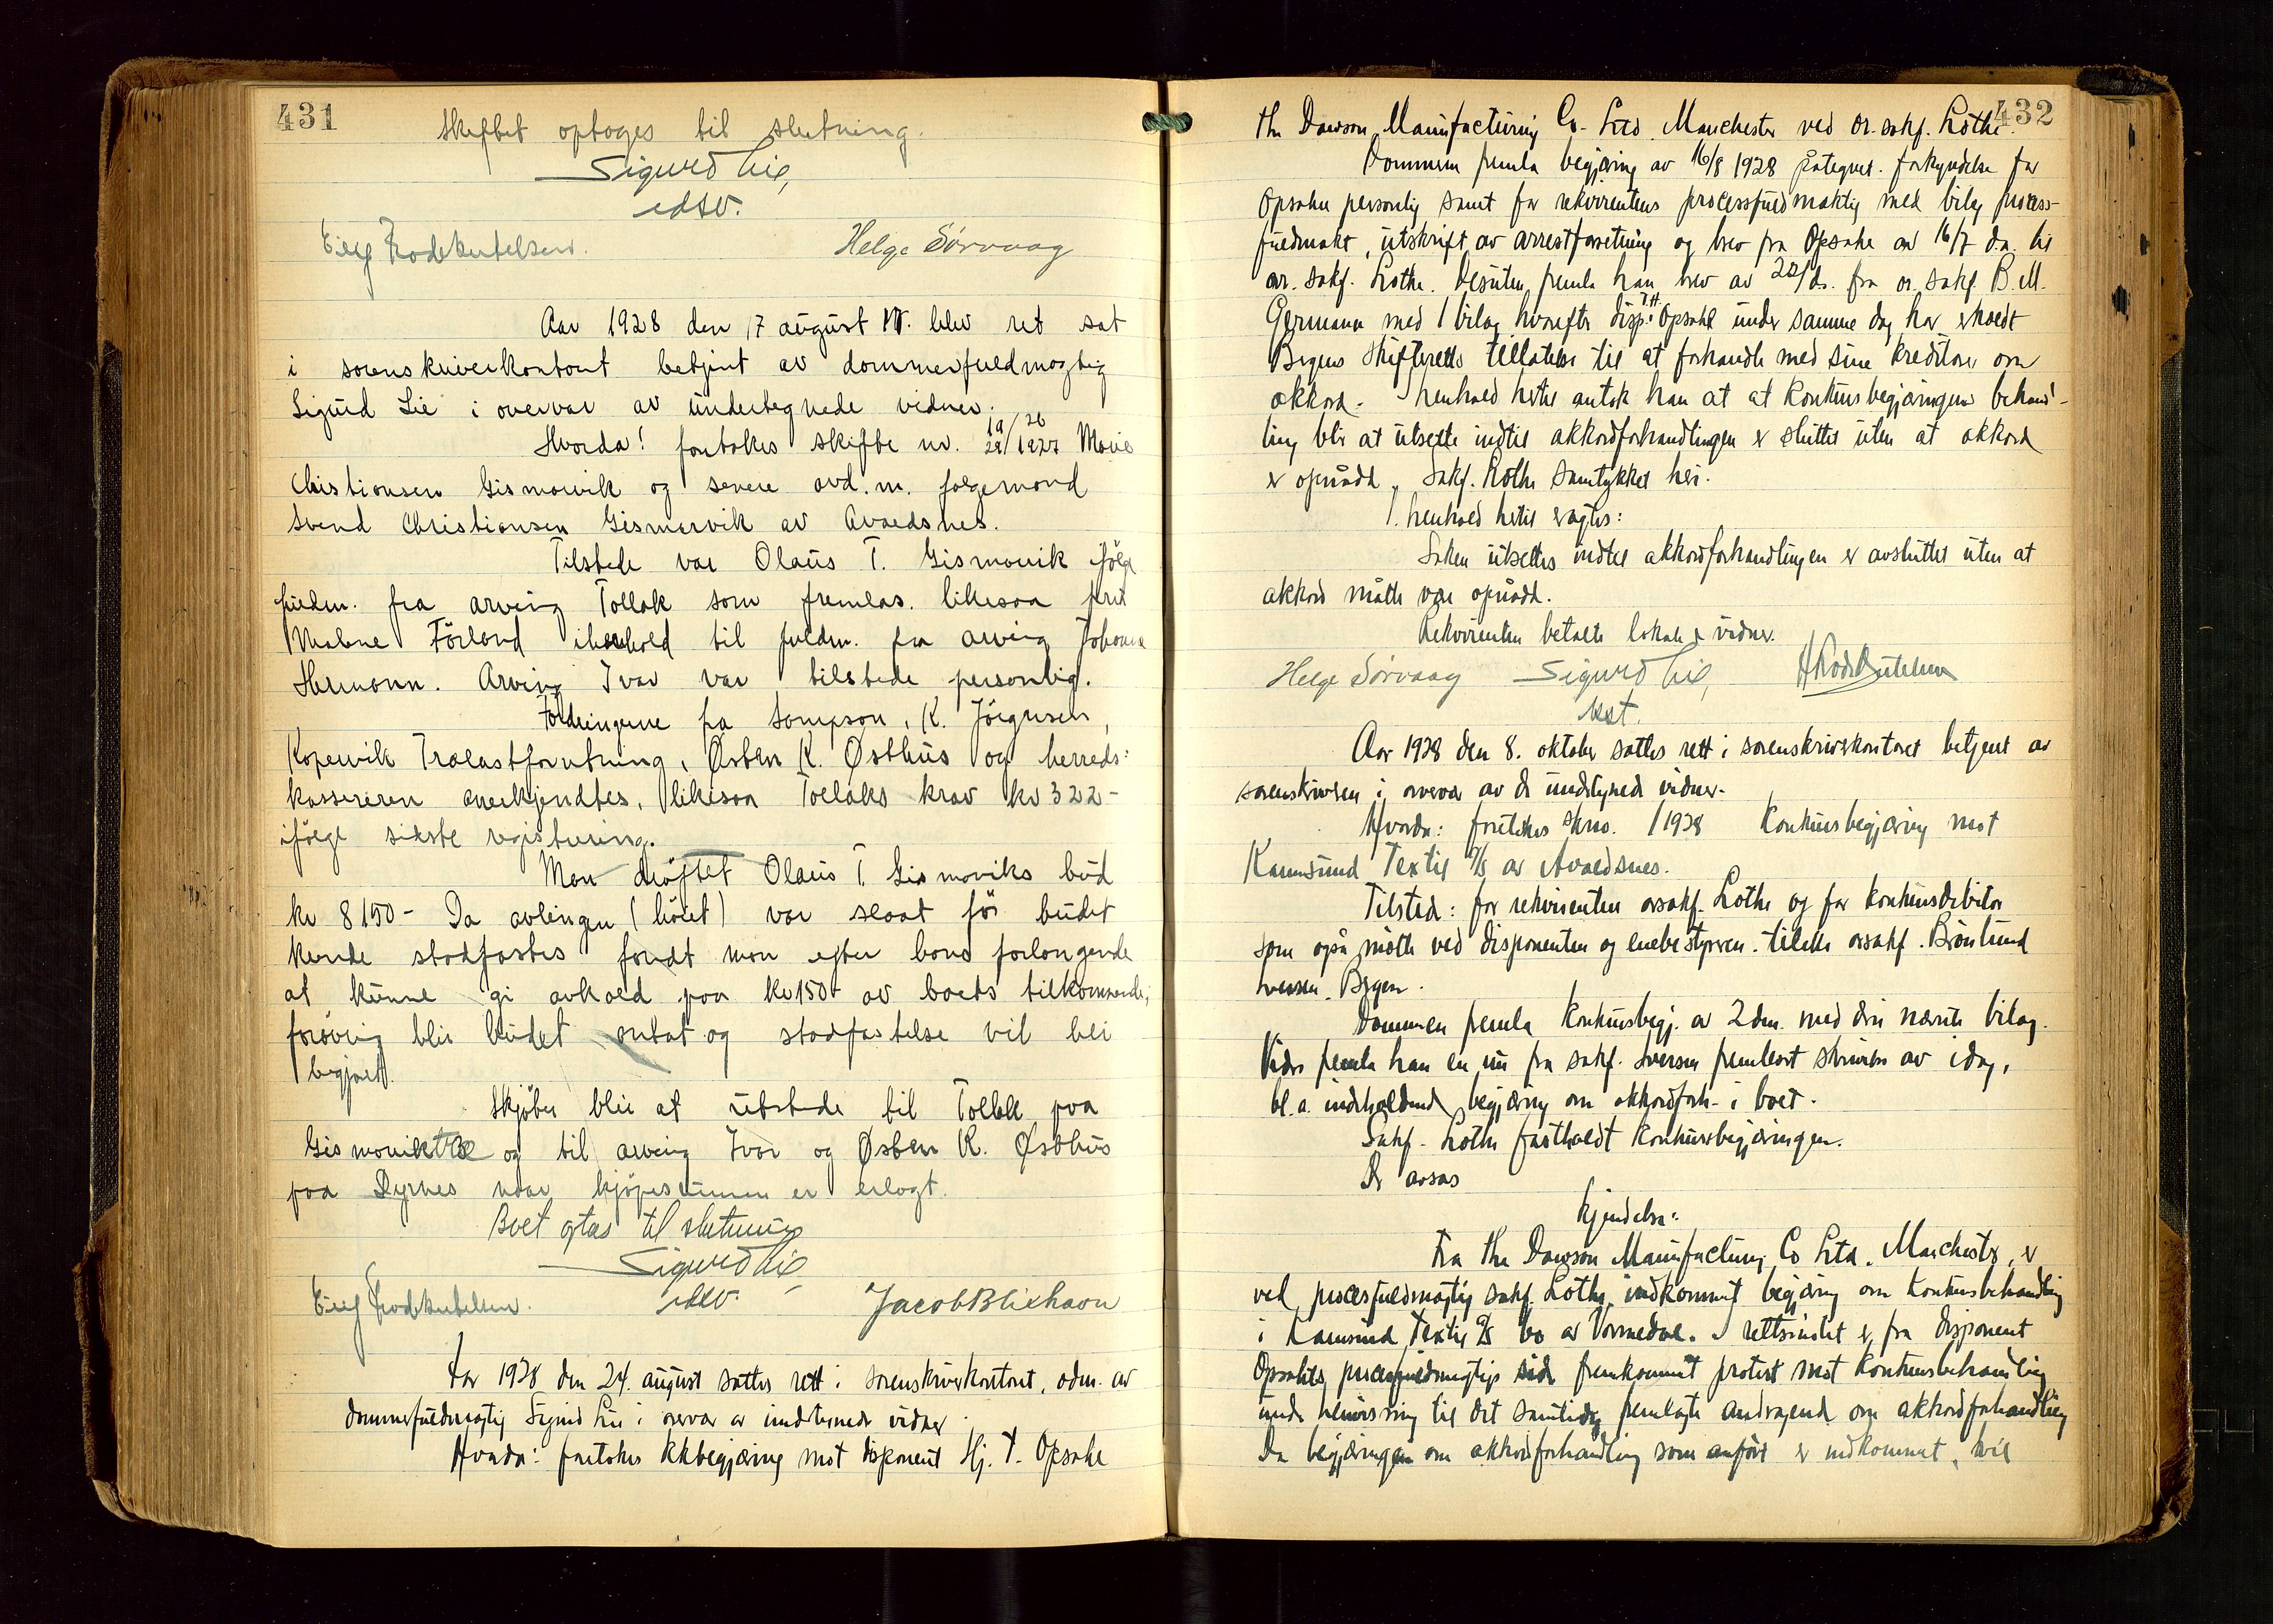 431
Skiftet optoges til slutning.
Sigurd Lie,
edsv.
Helge Sörvaag
Aar 1928 den 17 august blev ret sat
i sorenskriverkontoret betjent av dommerfuldmægtig
Sigurd Lie i overvær av undertegnede vidner.
Hvorda! foretokes skifte nr. 19/26 Marie
Christiansen Gismarvik og senere avd. m. følgemand
Svend Christiansen Gismarvik av Avaldsnes.
Tilstede var Olaus T. Gismarvik ifölge
fuldm. fra arving Tollak som fremlas. likesaa
Malene Förland ihenhold til fuldm. fra arving Johanna
Hermann. Arving Ivar var tilstede personlig.
Fordringerne fra Sampson, K. Jörgensen,
Kopervik Trælastforretning, Østen K. Østhus og herreds:
kassereren anerkjendtes, likesaa Tollaks krav kr 322-
ifölge sidste registrering.
Man dröftet Olaus T. Gismarviks bud
kr 8150- Da avlingen (höiet) var slaat för budet
kunde stadfæstes fandt man efter hans forlangende
at kunne gi avkald paa kr 150- av boets tilkommende;
forövrig blir budet antat og stadfæstelse vil bli
begjært.
Skjöter blir at utstede til Tollak paa
Gismarvik og til arving Ivar og Østen K. Østhus
paa Dyrnes naar kjöpesummen er erlagt.
Boet optas til slutning
Sigurd Lie
edsv.
Jacob Blikhavn
Aar 1928 den 24. august sattes rett i sorenskriverkontoret, adm. av
dommerfuldmægtig Sigurd Lie i overvær av undertegnede vidner.
Hvorda: foretokes kkbegjæring mot disponent Hj. T. Opsahl
432
The Dawson Manufacturing Co. Ltd. Manchester ved or. sakf. Lothe.
Dommeren fremla begjæring av 16/8 1928 påtegnet forkyndelse for
Opsahl personlig samt for rekvirentens processfuldmektig med bilag process-
fuldmakt, utskrift av arrestforretning og brev fra Opsahl av 16/7 d.a. til
or. sakf. Lothe. Desuten fremla han brev av 22/ds. fra or. sakf. B.M.
Germann med 1 bilag hvorefter disp. T.H. Opsahl under samme dag har erholdt
Bergens Skifteretts tillatelse til at forhandle med sine kreditorer om
akkord. I henhold hertil antok han at at konkursbegjæringens behand-
ling blir at utsette indtil akkordforhandlingen er sluttet uten at akkord
er opnådd. Sakf. Lothe samtykket heri.
I henhold hertil vagtes:
Saken utsettes indtil akkordforhandlingen er avsluttet uten at
akkord måtte være opnådd.
Rekvirenten betalte lokale & vidner.
Helge Sörvaag Sigurd Lie,
kst.
Aar 1928 den 8. oktober sattes rett i sorenskriverkontoret betjent av
sorenskriveren i overvær av de undertegnede vidner.
Hvorda: foretokes skno. /1928 Konkursbegjæring mot
Karmsund Textil A/S av Avaldsnes.
Tilstede: for rekvirenten orsakf. Lothe og for konkursdebitor
som også mötte ved disponenten og enebestyreren tillike orsakf. Brönlund
Iversen, Bergen.
Dommeren fremla konkursbegj. av 2 dm. med deri nævnte bilag.
Videre fremla han en nu fra sakf. Iversen fremlevert skrivelse av idag,
bl. a. indeholdende begjæring om akkordforh. i boet.
Sakf. Lothe fastholdt konkursbegjæringen.
Der avsas
Kjendelse:
Fra The Dawson Manufacturing Co Ltd. Manchester, er
ved procesfuldmægtig sakf. Lothe indkommet begjæring om konkursbehandling
i Karmsund Textil A/S bo av Vormedal. I rettsmötet er fra disponent
Opsahls procesfuldmægtigs side fremkommet protest mot konkursbehandling
under henvisning til det samtidig fremlagte andragende om akkordforhandling
Da begjæringen om akkordforhandling som anfört er indkommet, vil